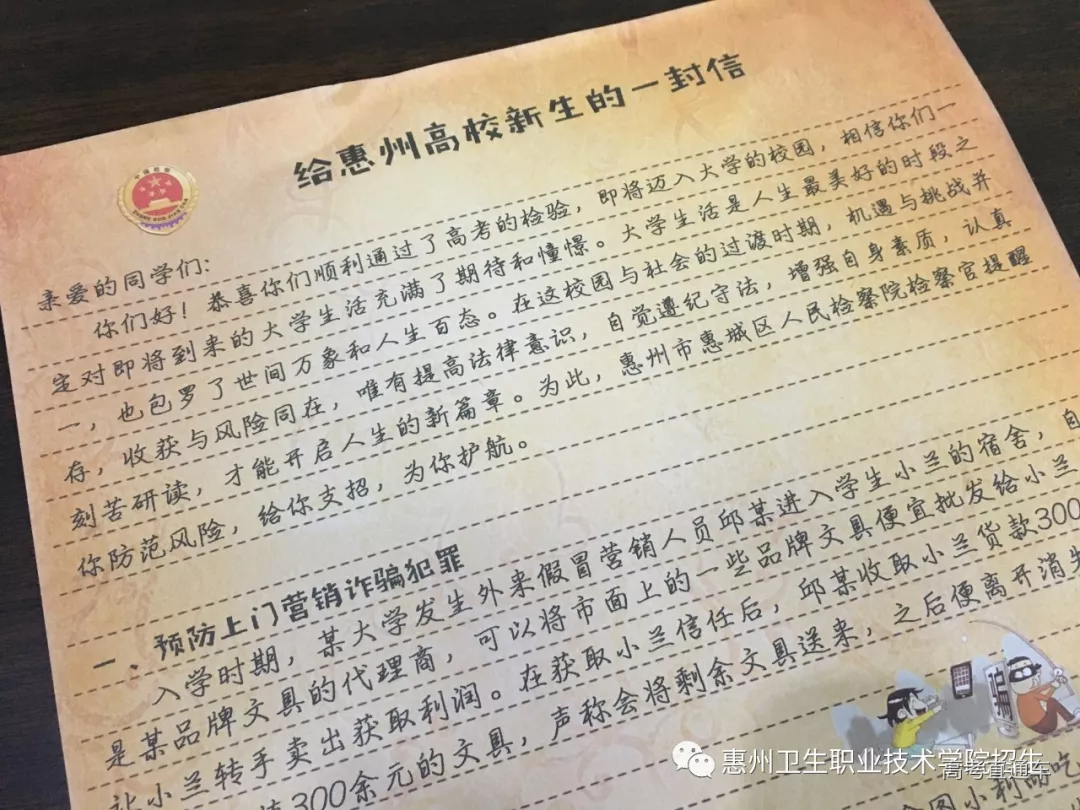 给惠州高校新生的一封信
亲爱的同学们：
你们好！恭喜你们顺利通过了高考的检验，即将迈入大学的校园，相信你们一
定对即将到来的大学生活充满了期待和憧憬。大学生活是人生最美好的时段之
一，也包罗了世间万象和人生百态。在这校园与社会的过渡时期，机遇与挑战并
存，收获与风险同在，唯有提高法律意识，自觉遵纪守法，增强自身素质，认真
刻苦研读，才能开启人生的新篇章。为此，惠州市惠城区人民检察院检察官提醒
你防范风险，给你支招，为你护航。
一、预防上门营销诈骗犯罪
入学时期，某大学发生外来假冒营销人员邱某进入学生小兰的宿舍，自
是某品牌文具的代理商，可以将市面上的一些品牌文具便宜批发给小兰
让小兰转手卖出获取利润。在获取小兰信任后，邱某收取小兰货款300
300余元的文具，声称会将剩余文具送来，之后便离开消失
图小利
吃
惠州卫生职业技术学院招生
高考直通车